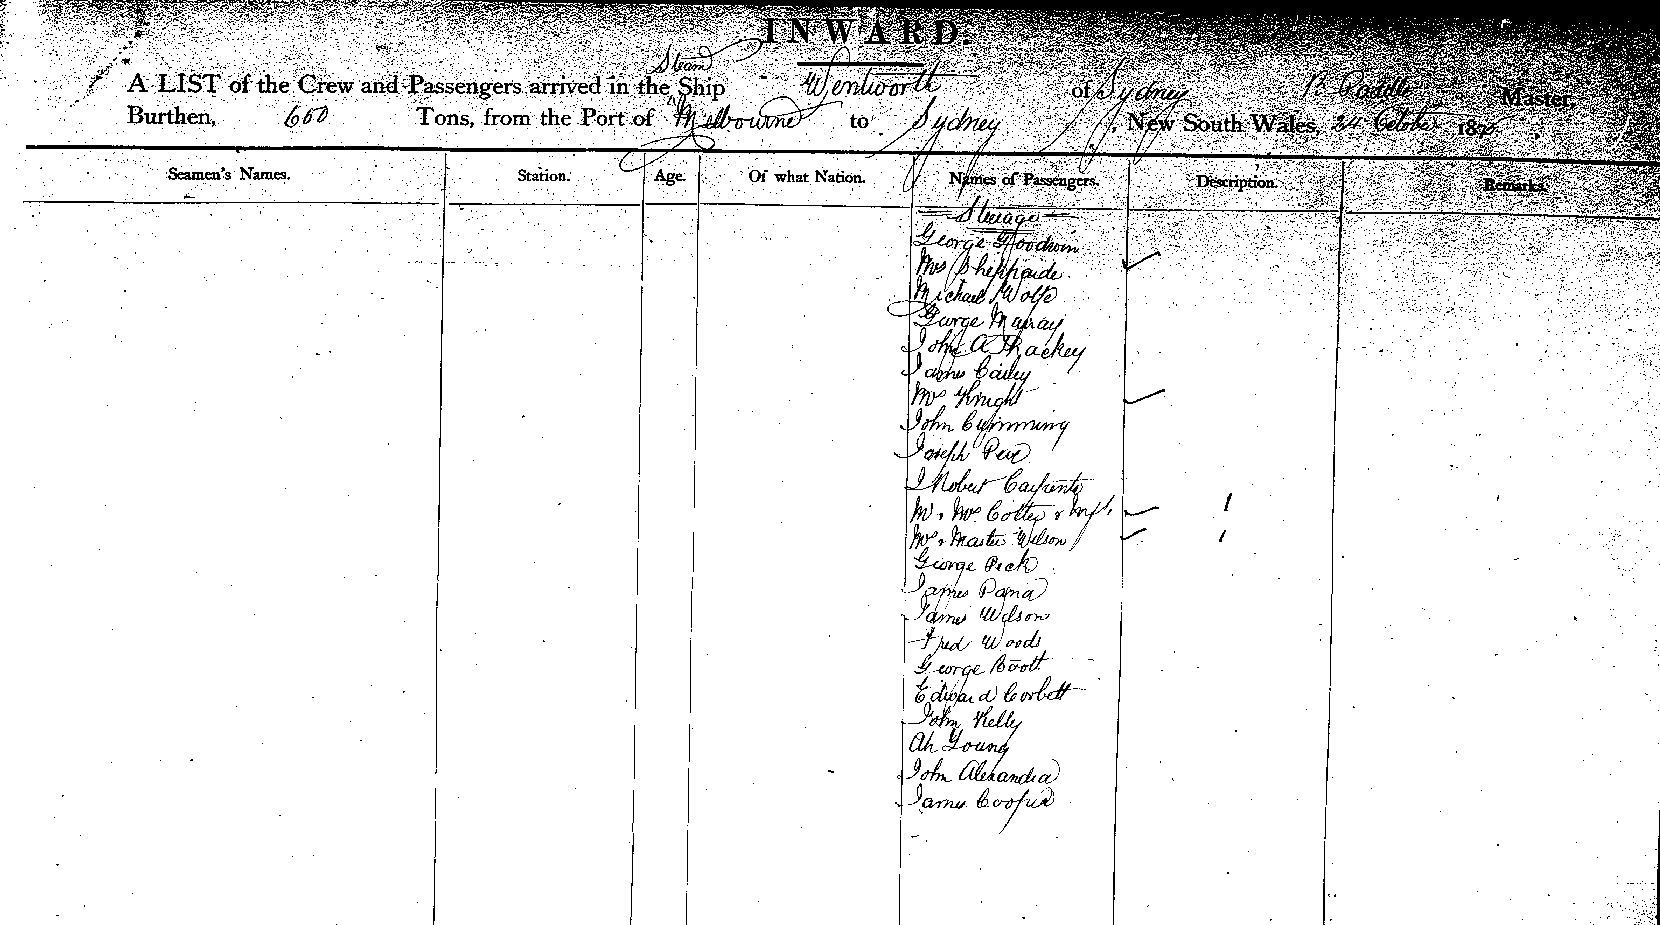 INWARD.
Steam
A LIST of the Crew and Passengers arrived in the Ship Wentworth of Sydney Master,
Burthen, 660 Tons, from the Port of Melbourne to Sydney, New South Wales, 24 October 187
Seamen's Names. Station. Age. Of what Nation. Names of Passengers. Description. Remarks.
Steerage
George Goodwin
Mrs Shephaide
Michael Wolfe
George Murray
John A Thackey
James Bailey
Mrs Knight
John Cumming
Joseph
J Robert Carpenter
Mr & Mrs Cotter & Inft.
Mrs & Master Wilson
George Peck
James Pama
James Wilson
Fred Woods
George Boott
Edward Corbett
John Kelly
Ah Young
John Alexander
James Cooper